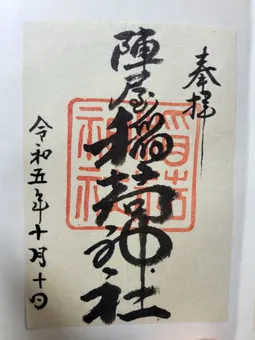 奉拝
陣屋稲荷神社
稲荷神社
令和五年十月十日